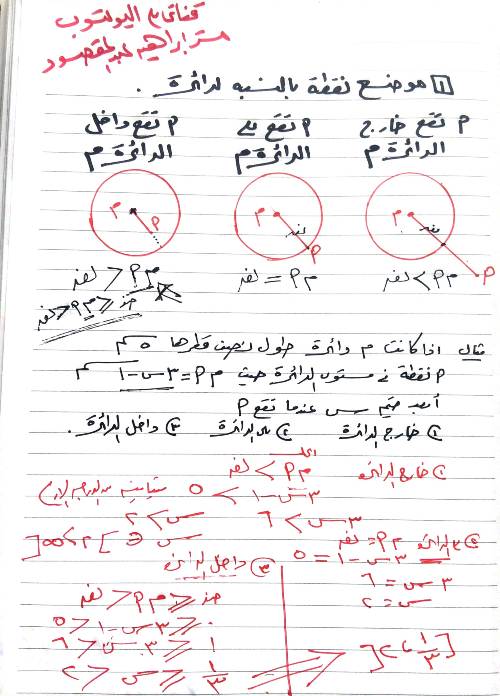 قناتي ع اليوتيوب
مستر ابراهيم عبدالمقصود
[1] موضع نقطة بالنسبه لدائرة .
P تقع خارج الدائرة م
P تقع على الدائرة م
P تقع داخل الدائرة م
م
نق
P
م
نق
P
م
P
م P > نق
م P = نق
م P < نق
صفر ≤ م P < نق
مثال اذا كانت م دائرة طول نصف قطرها ٥ سم
P نقطة في مستوى الدائرة حيث م P = ٣س - ١ سم
أوجد قيم س عندما تقع P
① خارج الدائرة ② على الدائرة ③ داخل الدائرة .
① خارج الدائرة
م P > نق
٣س - ١ > ٥ متباينه من الدرجه الاولى
٣س > ٦ س > ٢
س ∈ ]٢ ، ∞[
② على الدائرة م P = نق
٣س - ١ = ٥
٣س = ٦
س = ٢
③ داخل الدائرة
صفر ≤ م P < نق
٠ ≤ ٣س - ١ < ٥
١ ≤ ٣س < ٦
١/٣ ≤ س < ٢
[١/٣ ، ٢[